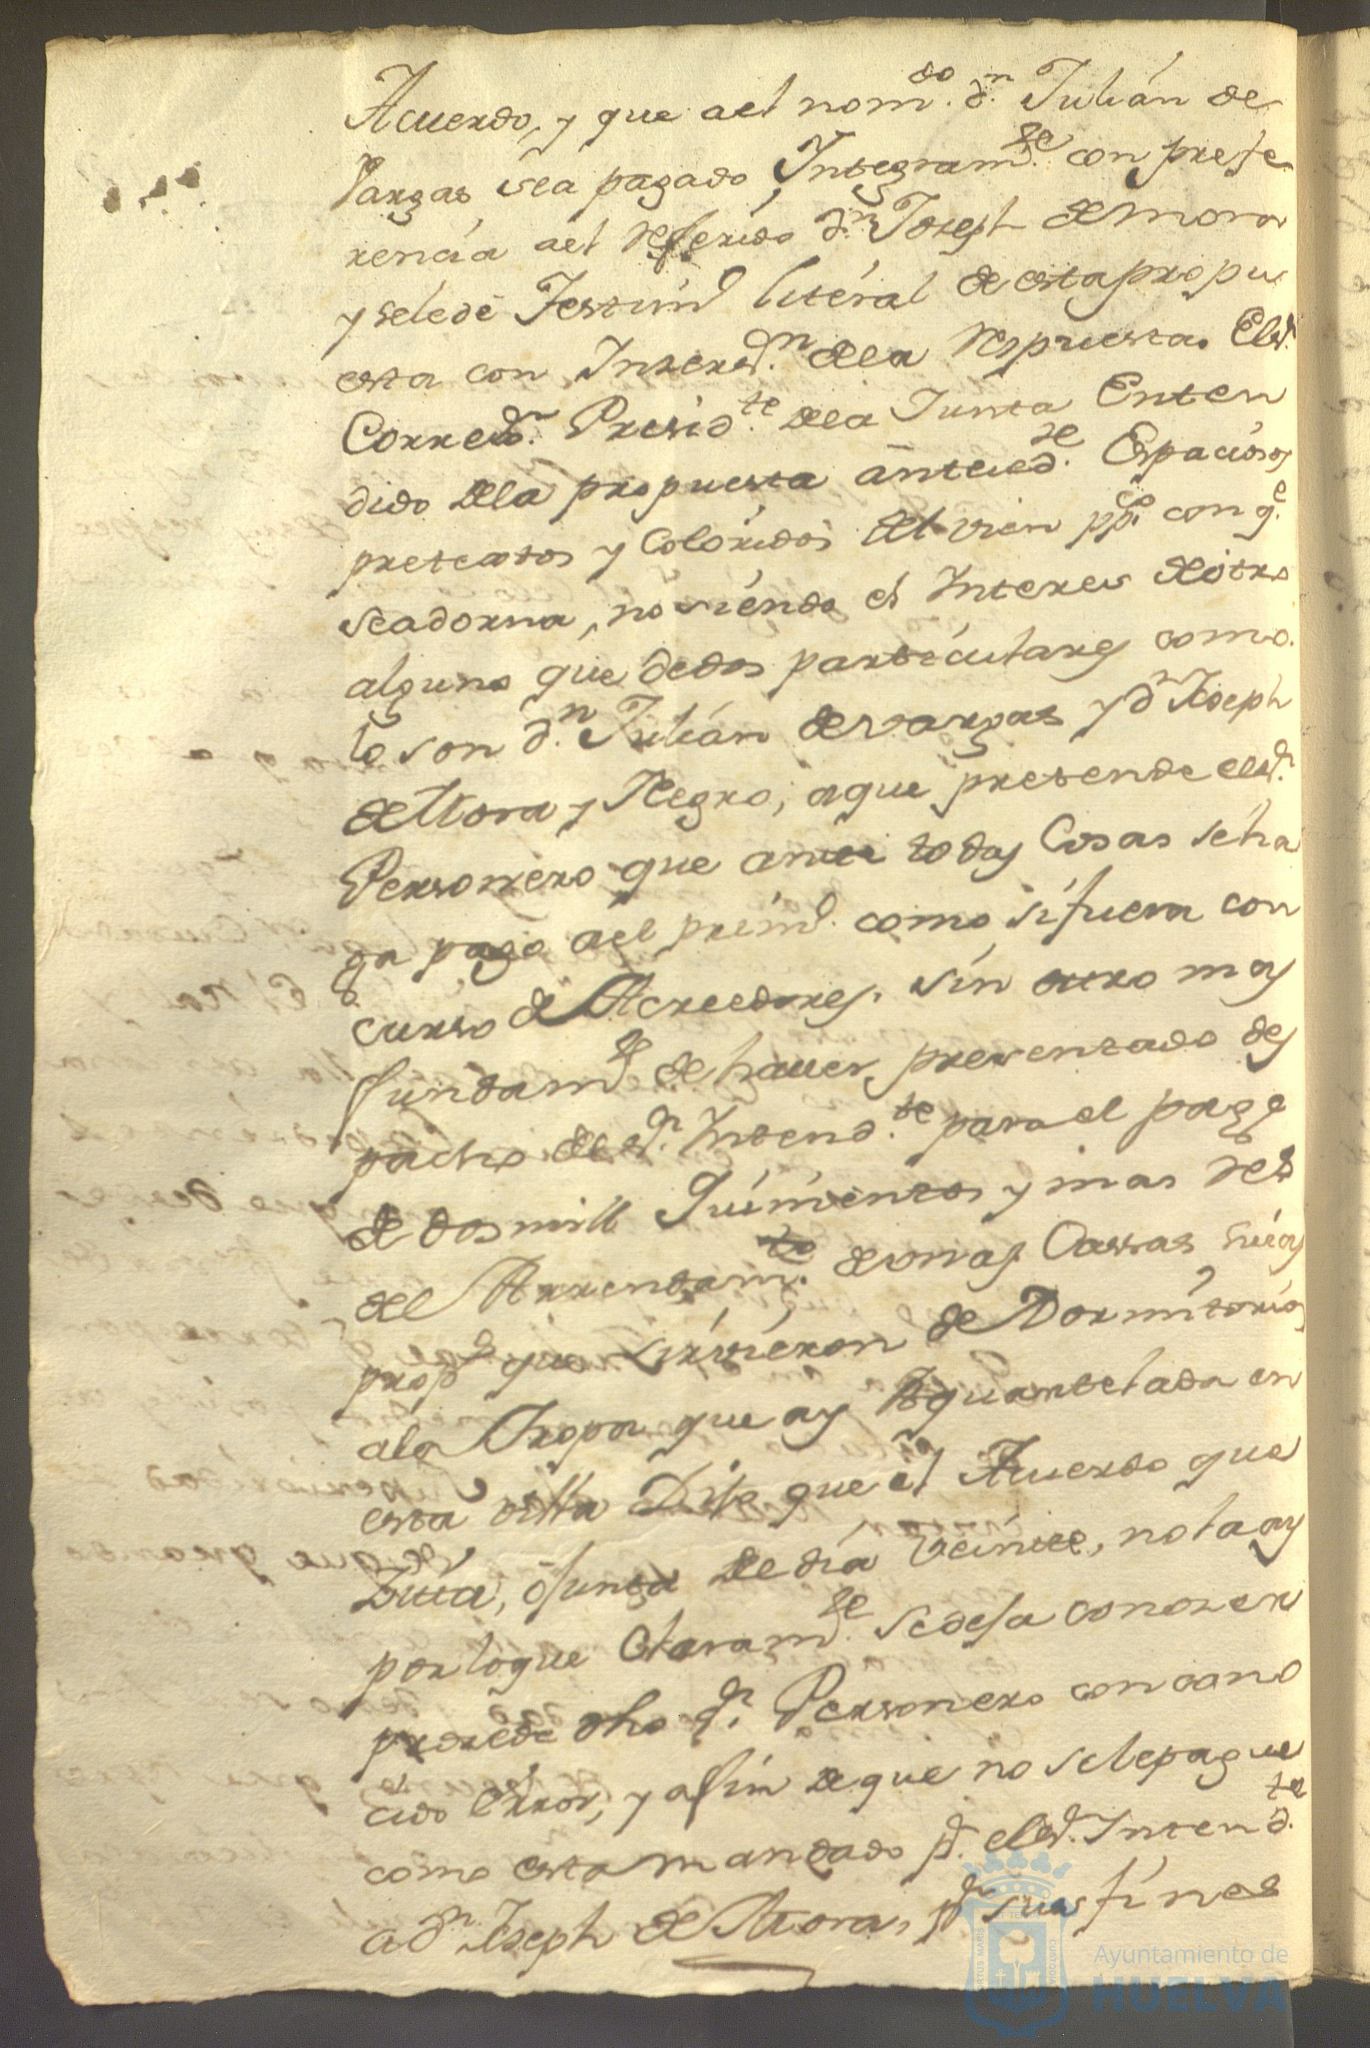 Acuerdo, y que ael nom.do d.n Julián de
Vargas séa pagado Integram.te con prefe
rencia ael referido d.n Joseph de Mora
y sele dé Testim.o literal de esta propu
esta con Inserz.n de la respuesta. El s.r
Corregr. Presid.te de la Junta Enten
dido de la propuesta anteced.te Espaciosos
pretextos y Coloridos del vien pp.co con q.e
se adorna, no siendo el Interes de otro
alguno que de dos particulares como
lo son d.n Julián de Vargas y d.n Joseph
de Mora y Negro, a que pretende el s.r
Personero que ante todas Cosas se ha
ga pago ael prim.o como si fuera con
curso de Acreedores, sin otro mas
fundam.te de haver presentado des
pacho del s.r Intend.te para el pago
de dos mill Quinientos y mas res
del Arrendam.to de unas Cassas suias
prop.s que sirvieron de Dormitorios
a la Tropa que ay Aquartelada en
esta villa Dijo que el Acuerdo que
Zitta, o Junta de dia veinte, no la ay
por loque Claram.te se deja conozer
prozede dho s.r Personero con cono
cido Error, y a fin de que no se le pague
como esta mandado p.r el s.r Intend.te
a d.n Joseph de Mora, p.r sus fines
Ayuntamiento de
HUELVA